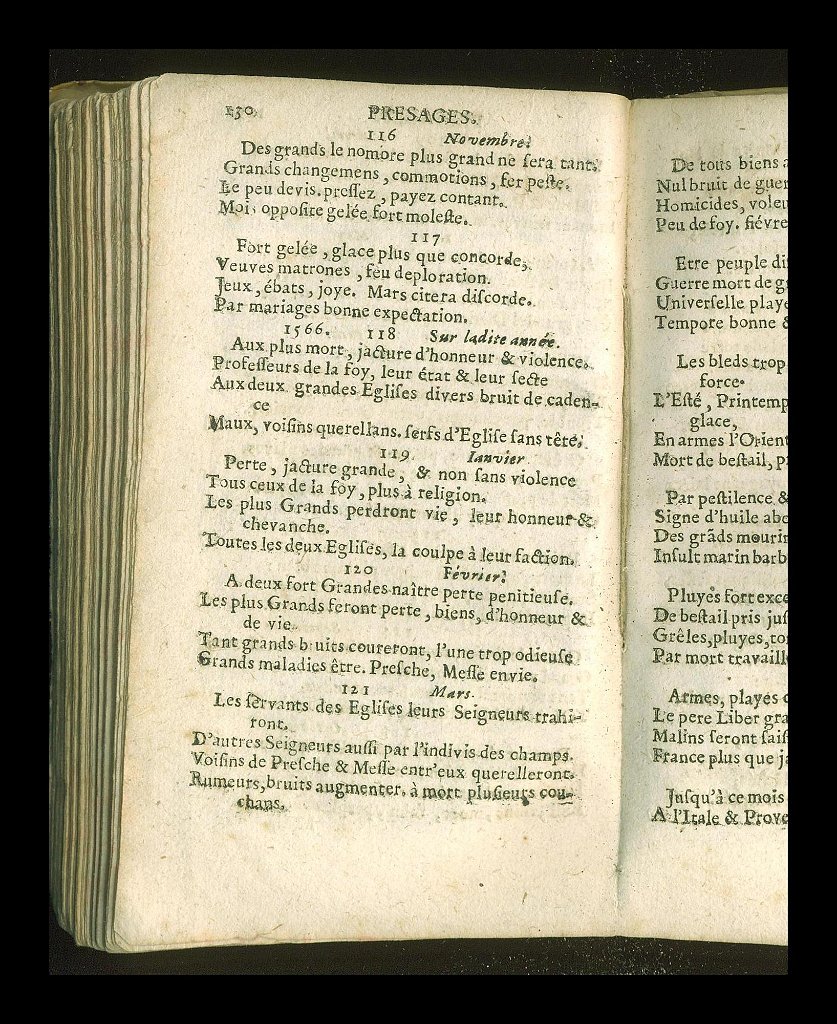 150 PRESAGES.
116 Novembre.
Des grands le nomore plus grand ne ſera tant.
Grands changemens, commotions, fer peſte.
Le peu devis. preſſez, payez contant.
Moi, oppoſite gelée fort moleſte.
117
Fort gelée, glace plus que concorde,
Veuves matrones, feu deploration.
Jeux, ébats, joye. Mars citera diſcorde.
Par mariages bonne expectation.
1566. 118 Sur ladite année.
Aux plus mort, jacture d'honneur & violence.
Profeſſeurs de la foy, leur état & leur ſecte
Aux deux grandes Egliſes divers bruit de caden-
ce
Maux, voiſins querellans. ſerfs d'Egliſe ſans tête.
119. Ianvier.
Perte, jacture grande, & non ſans violence
Tous ceux de la foy, plus à religion.
Les plus Grands perdront vie, leur honneur &
chevanche.
Toutes les deux Egliſes, la coulpe à leur faction.
120 Février.
A deux fort Grandes naître perte penitieuſe.
Les plus Grands feront perte, biens, d'honneur &
de vie
Tant grands bruits coureront, l'une trop odieuſe
Grands maladies être. Preſche, Meſſe envie.
121 Mars.
Les ſervants des Egliſes leurs Seigneurs trahi-
ront.
D'autres Seigneurs auſſi par l'indivis des champs.
Voiſins de Preſche & Meſſe entr'eux querelleront.
Rumeurs, bruits augmenter. à mort pluſieurs cou-
chans.
De tous biens
Nul bruit de
Homicides,
Peu de foy. fiévre
Etre peuple
Guerre mort de
Univerſelle
Tempore bonne
Les bleds trop
force.
L'Eſté,
glace,
En armes
Mort de beſtail,
Par peſtilence &
Signe d'huile
Des grãds
Inſult marin
Pluyes fort
De beſtail pris
Grêles, pluyes,
Par mort
Armes, playes
Le pere Liber
Malins ſeront
France plus que
Juſqu'à ce mois
A l'Itale &